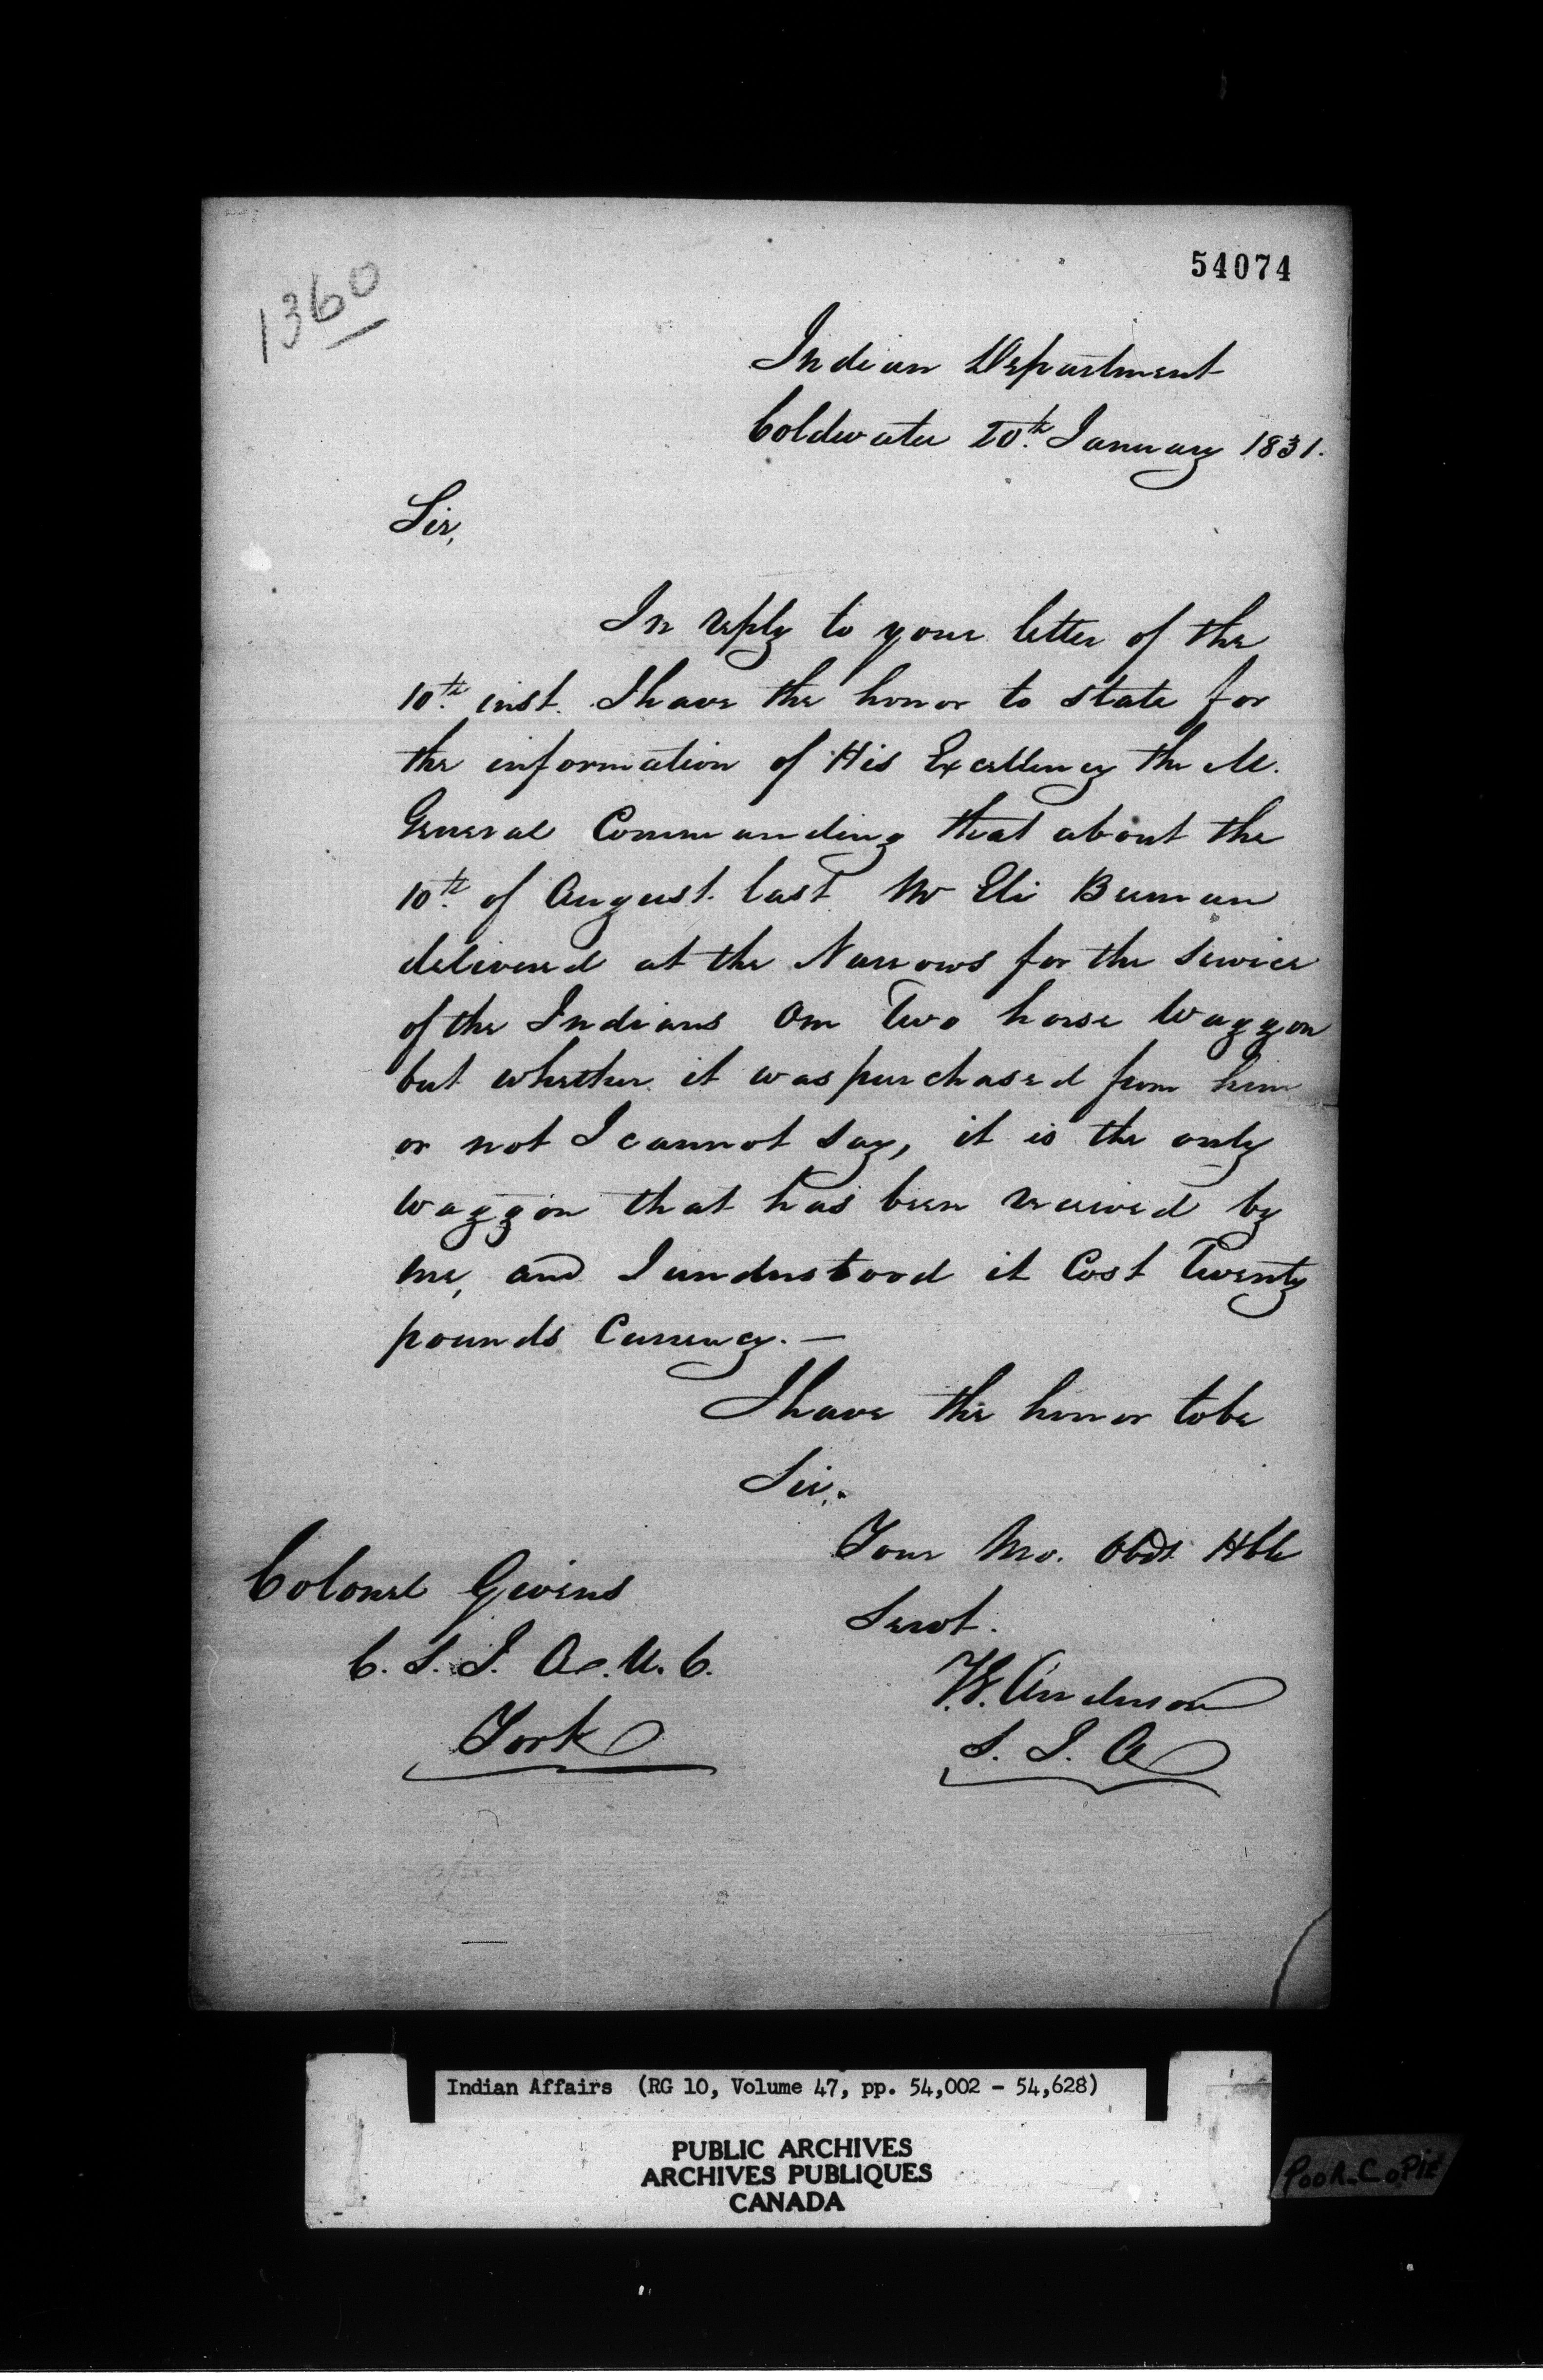 54074
1360
Indian Department
Coldwater 20th January 1831.
Sir,
In reply to your letter of the
10th inst. I have the honor to state for
the information of His Excellency the M.
General Commanding that about the
10th of August last Mr Eli Beman
delivered at the Narrows for the service
of the Indians One Two horse Waggon
but whether it was purchased from him
or not I cannot say, it is the only
waggon that has been received by
me, and I understood it Cost Twenty
pounds Currency. —
I have the honor to be
Sir,
Your Mo. Obdt Hble
Servt.
Colonel Givins
C. S. I. A. U. C.
York
Anderson
S. I. A
Indian Affairs (RG 10, Volume 47, pp. 54,002 - 54,628)
PUBLIC ARCHIVES
ARCHIVES PUBLIQUES
CANADA
POOR COPIE